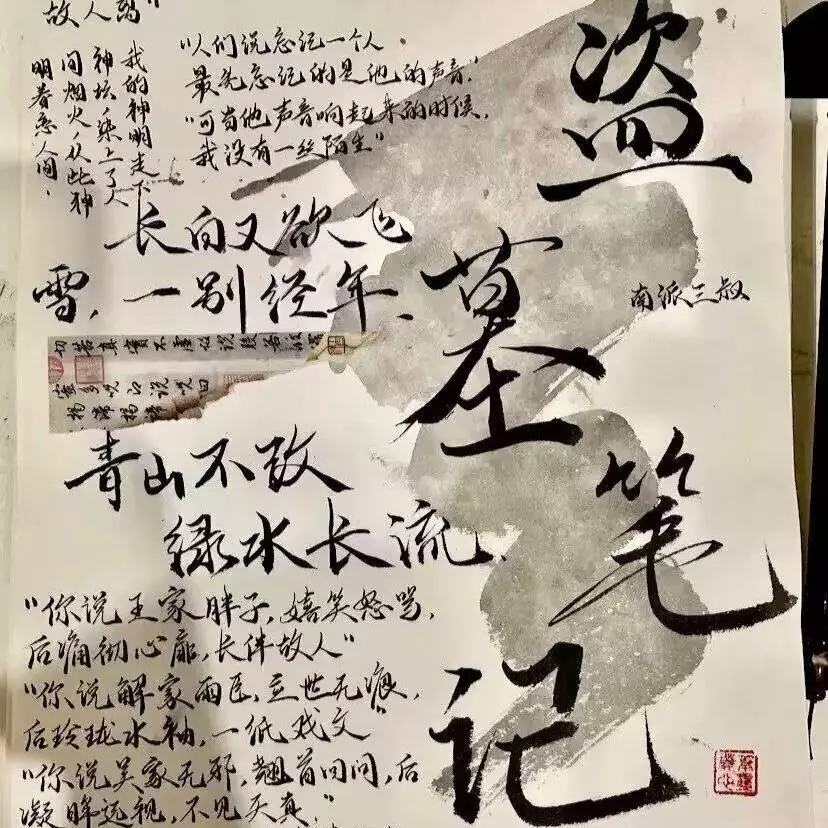 故人离"
"人们说忘记一个人
最先忘记的是他的声音"
"可当他声音响起来的时候,
我没有一丝陌生"
我的神明走下
神坛,染上了人
间烟火,从此神
明眷恋人间.
长白又欲飞
雪,一别经年.
切苦真實不虛故說般若波
蜜多咒即說咒曰
揭諦揭諦
青山不改
绿水长流.
"你说王家胖子,嬉笑怒骂,
后痛彻心扉,长伴故人"
"你说解家雨臣,立世无痕,
后玲珑水袖,一纸戏文"
"你说吴家无邪,翘首回问,后
凝眸远视,不见天真."
盗墓笔记
南派三叔